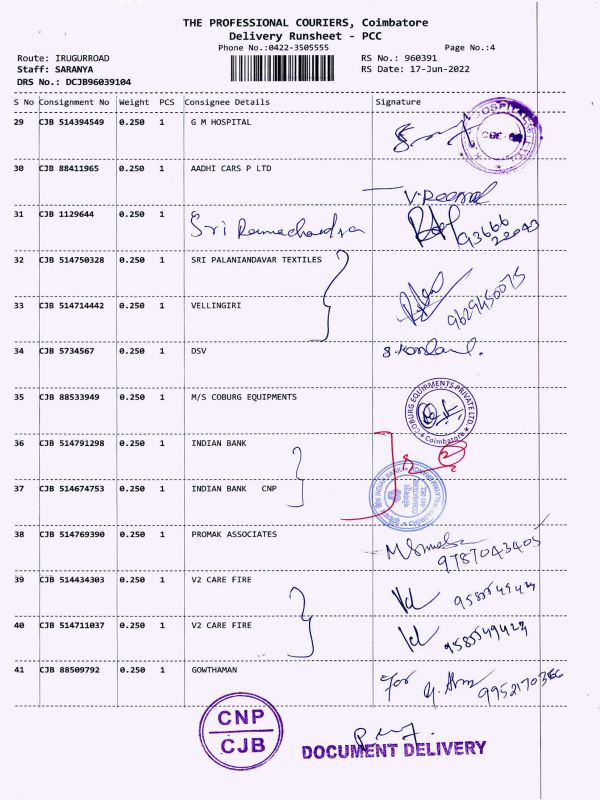 THE PROFESSIONAL COURIERS, Coimbatore
Delivery Runsheet - PCC
Phone No.:0422-3505555 Page No.:4
Route: IRUGURROAD RS No.: 960391
Staff: SARANYA RS Date: 17-Jun-2022
DRS No.: DCJB96039104
S No Consignment No Weight PCS Consignee Details Signature
29 CJB 514394549 0.250 1 G M HOSPITAL
30 CJB 88411965 0.250 1 AADHI CARS P LTD
31 CJB 1129644 0.250 1 Sri Ramachandra 93666 22043
32 CJB 514750328 0.250 1 SRI PALANIANDAVAR TEXTILES
33 CJB 514714442 0.250 1 VELLINGIRI 9629450075
34 CJB 5734567 0.250 1 DSV
35 CJB 88533949 0.250 1 M/S COBURG EQUIPMENTS
COBURG EQUIPMENTS PRIVATE LTD.
Coimbatore
36 CJB 514791298 0.250 1 INDIAN BANK
2
37 CJB 514674753 0.250 1 INDIAN BANK CNP
38 CJB 514769390 0.250 1 PROMAK ASSOCIATES 9787043405
39 CJB 514434303 0.250 1 V2 CARE FIRE
40 CJB 514711037 0.250 1 V2 CARE FIRE 9585549424
41 CJB 88509792 0.250 1 GOWTHAMAN For
CNP
CJB
DOCUMENT DELIVERY